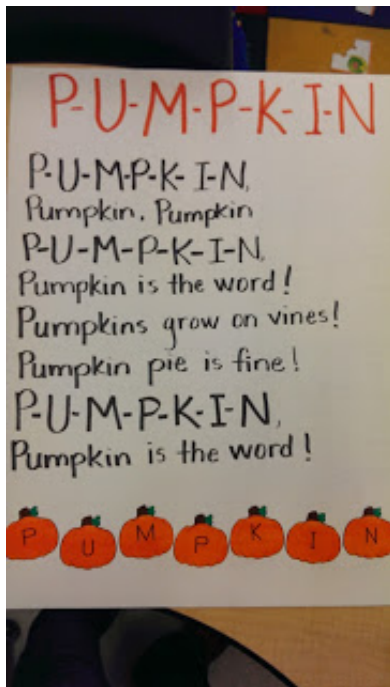 P-U-M-P-K-I-N
P-U-M-P-K-I-N,
Pumpkin, Pumpkin
P-U-M-P-K-I-N,
Pumpkin is the word!
Pumpkins grow on vines!
Pumpkin pie is fine!
P-U-M-P-K-I-N,
Pumpkin is the word!
P U M P K I N